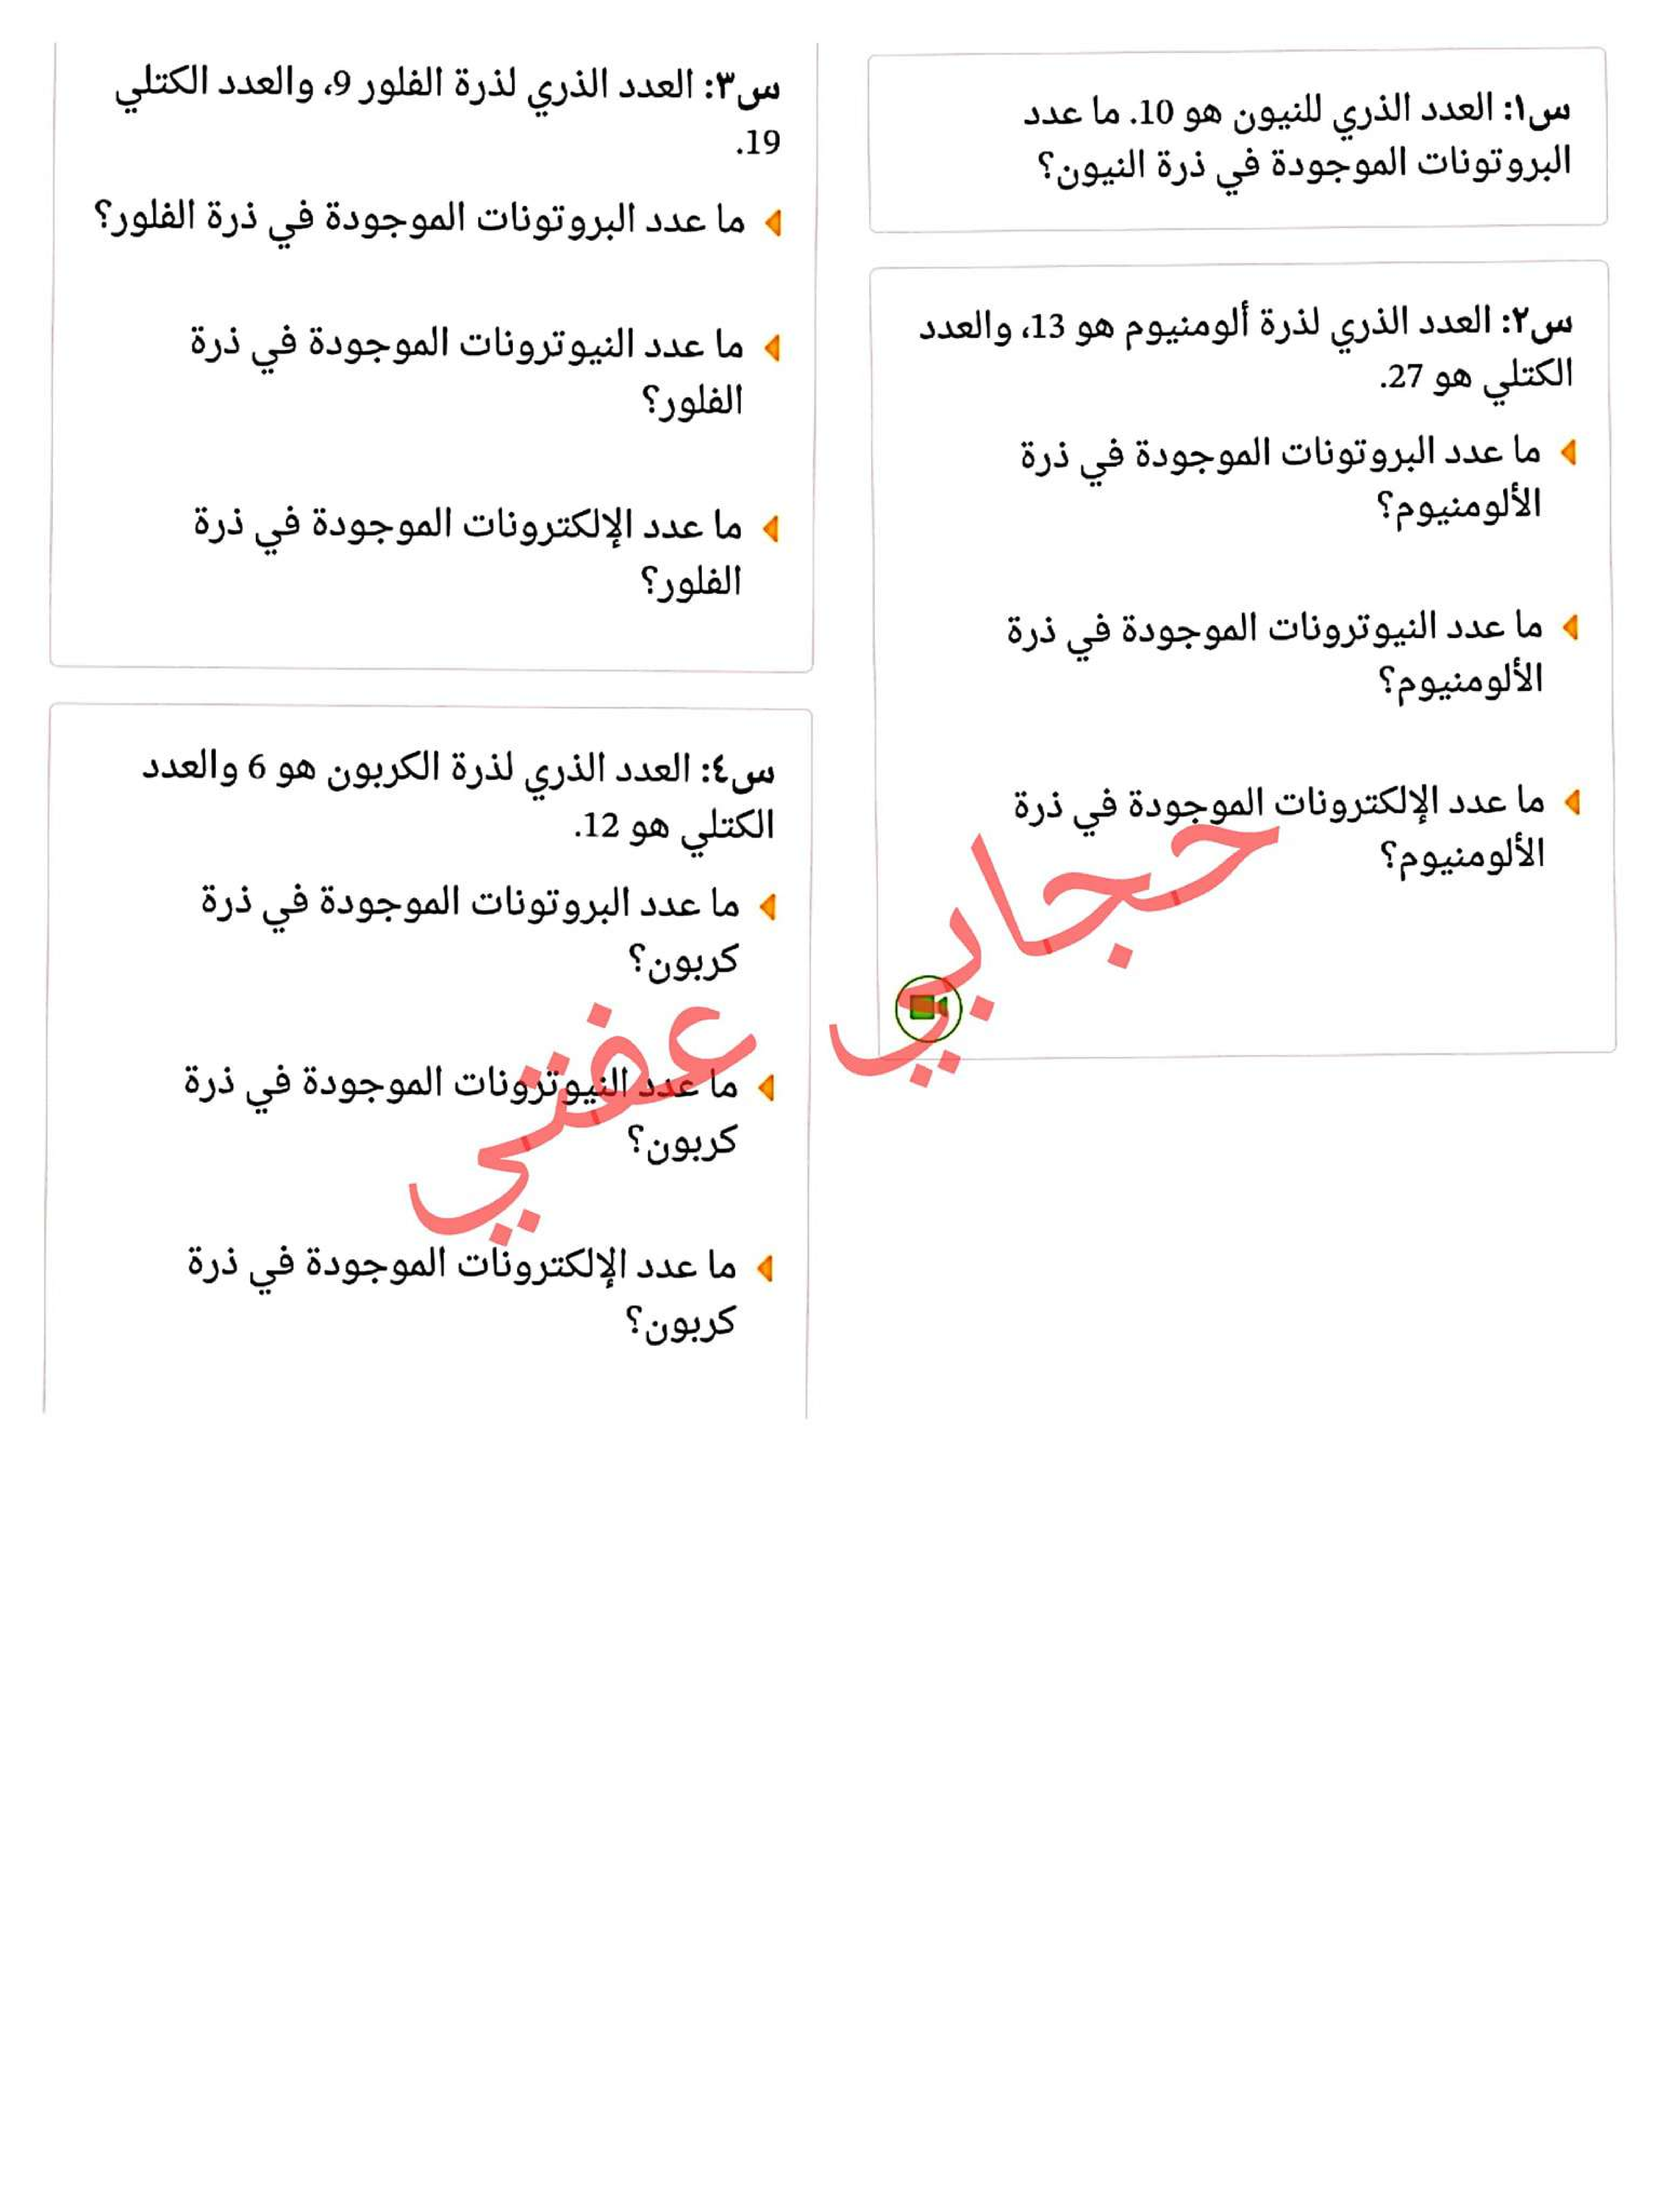 س١: العدد الذري للنيون هو 10. ما عدد
البروتونات الموجودة في ذرة النيون؟
س٢: العدد الذري لذرة ألومنيوم هو 13، والعدد
الكتلي هو 27.
ما عدد البروتونات الموجودة في ذرة
الألومنيوم؟
ما عدد النيوترونات الموجودة في ذرة
الألومنيوم؟
ما عدد الإلكترونات الموجودة في ذرة
الألومنيوم؟
س٣: العدد الذري لذرة الفلور 9، والعدد الكتلي
19.
ما عدد البروتونات الموجودة في ذرة الفلور؟
ما عدد النيوترونات الموجودة في ذرة
الفلور؟
ما عدد الإلكترونات الموجودة في ذرة
الفلور؟
س٤: العدد الذري لذرة الكربون هو 6 والعدد
الكتلي هو 12.
ما عدد البروتونات الموجودة في ذرة
كربون؟
ما عدد النيوترونات الموجودة في ذرة
كربون؟
ما عدد الإلكترونات الموجودة في ذرة
كربون؟
حجابي عفتي